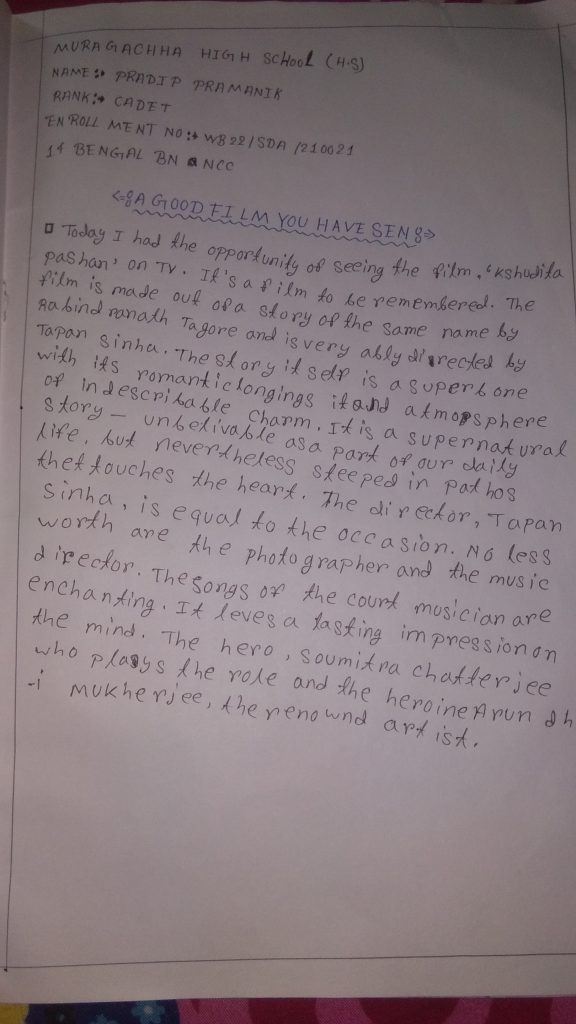 MURAGACHHA HIGH SCHOOL (H.S)
NAME:• PRADIP PRAMANIK
RANK:• CADET
ENROLL MENT NO:• WB22/SDA/210021
14 BENGAL BN NCC
A GOOD FILM YOU HAVE SEN
Today I had the opportunity of seeing the film, 'Kshudita
pashan' on TV. It's a film to be remembered. The
film is made out of a story of the same name by
Rabindranath Tagore and is very ably directed by
Tapan Sinha. The story it self is a superb one
with its romantic longings it and atmosphere
of indescribable charm. It is a supernatural
story — unbelivable as a part of our daily
life, but nevertheless steeped in pathos
thet touches the heart. The director, Tapan
Sinha, is equal to the occasion. No less
worth are the photographer and the music
director. The songs of the court musician are
enchanting. It leves a lasting impression on
the mind. The hero, Soumitra chatterjee
who plays the role and the heroine Arundh
-i Mukherjee, the renownd artist.